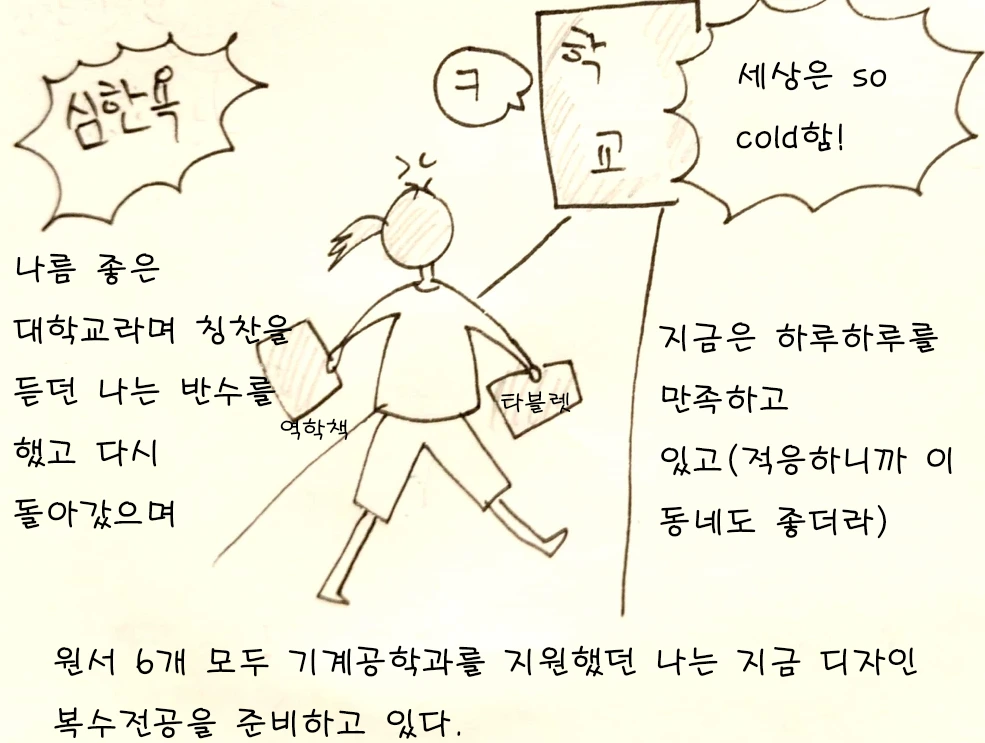 심한욕
ㅋ
학
교
세상은 so
cold함!
나름 좋은
대학교라며 칭찬을
듣던 나는 반수를
했고 다시
돌아갔으며
역학책
타블렛
지금은 하루하루를
만족하고
있고(적응하니까 이
동네도 좋더라)
원서 6개 모두 기계공학과를 지원했던 나는 지금 디자인
복수전공을 준비하고 있다.